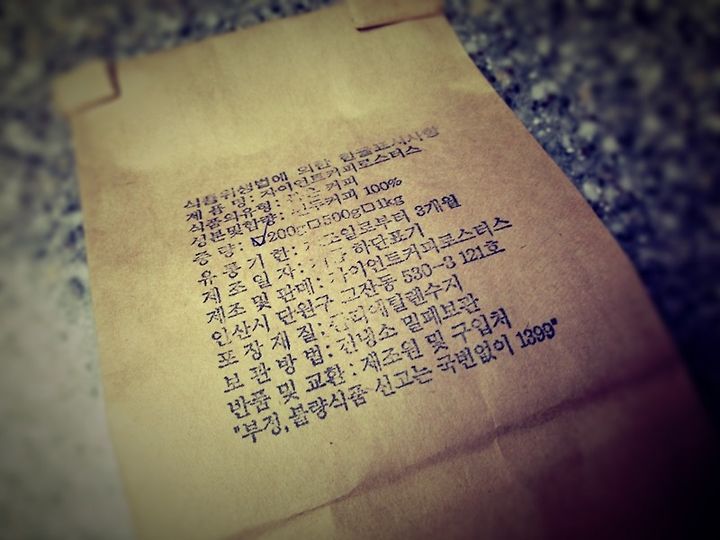 식품위생법에 의한 한글표시사항
제 품 명: 자이언트커피로스터스
식품의유형: 커피
성분및함량: 원두커피 100%
중 량: ☑200g□500g□1kg
유 통 기 한: 제조일로부터 3개월
제 조 일 자: 하단표기
제조 및 판매: 자이언트커피로스터스
안산시 단원구 고잔동 530-3 121호
포 장 재 질: 폴리에틸렌수지
보 관 방 법: 건냉소 밀폐보관
반품 및 교환: 제조원 및 구입처
"부정,불량식품 신고는 국번없이 1399"